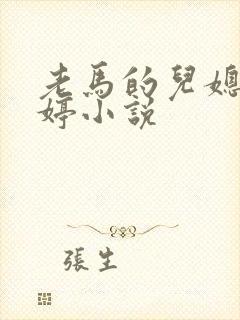 老馬的兒媳
婷小說
張生